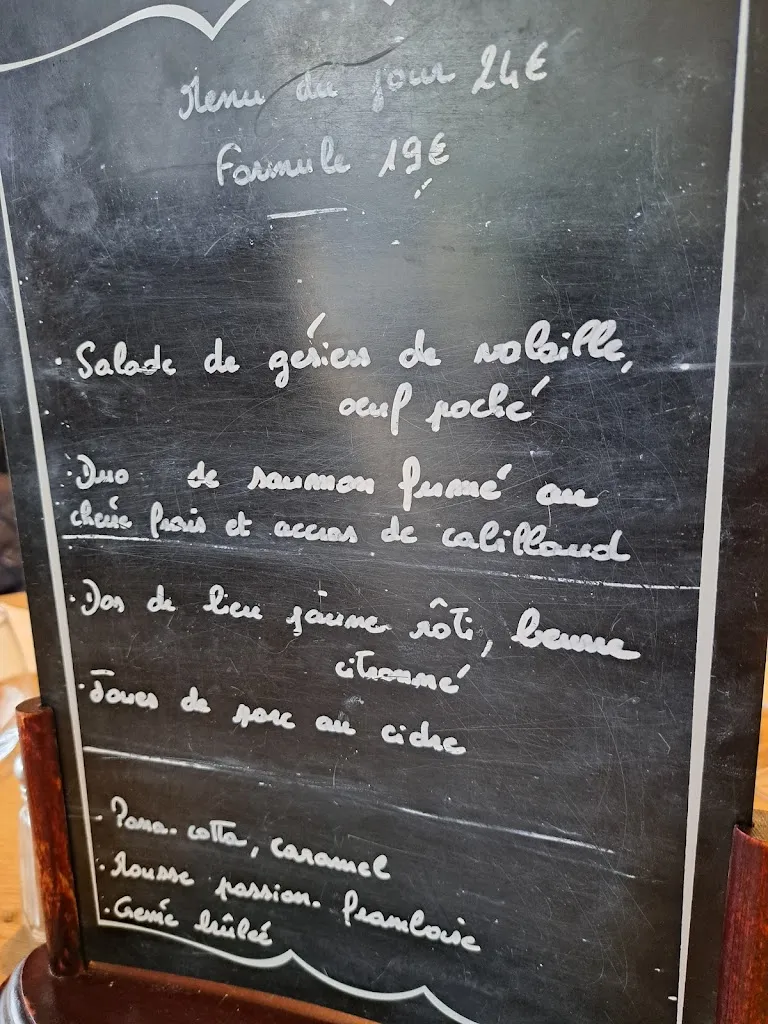 Menu du jour 24€
Formule 19€
· Salade de gésiers de volaille,
oeuf poché
· Duo de saumon fumé au
chèvre frais et accras de cabillaud
· Dos de lieu jaune rôti, beurre
citronné
· Joues de porc au cidre
- Panna-cotta, caramel
· Mousse passion-framboise
· Crème brûlée